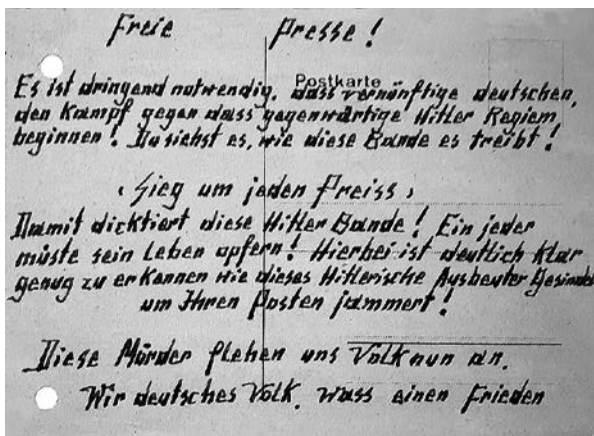 Freie Presse!
Postkarte
Es ist dringend notwendig, dass vernünftige deutschen,
den Kampf gegen dass gegenwärtige Hitler Regiem
beginnen! Du siehst es, wie diese Bande es treibt!
„Sieg um jeden Preiss"
Damit dicktiert diese Hitler Bande! Ein jeder
müste sein Leben opfern! Hierbei ist deutlich Klar
genug zu erkannen wie dieses Hitlerische Ausbeuter Gesindel
um Ihren Posten jammert!
Diese Mörder flehen uns Volk nun an.
Wir deutsches Volk, wass einen Frieden